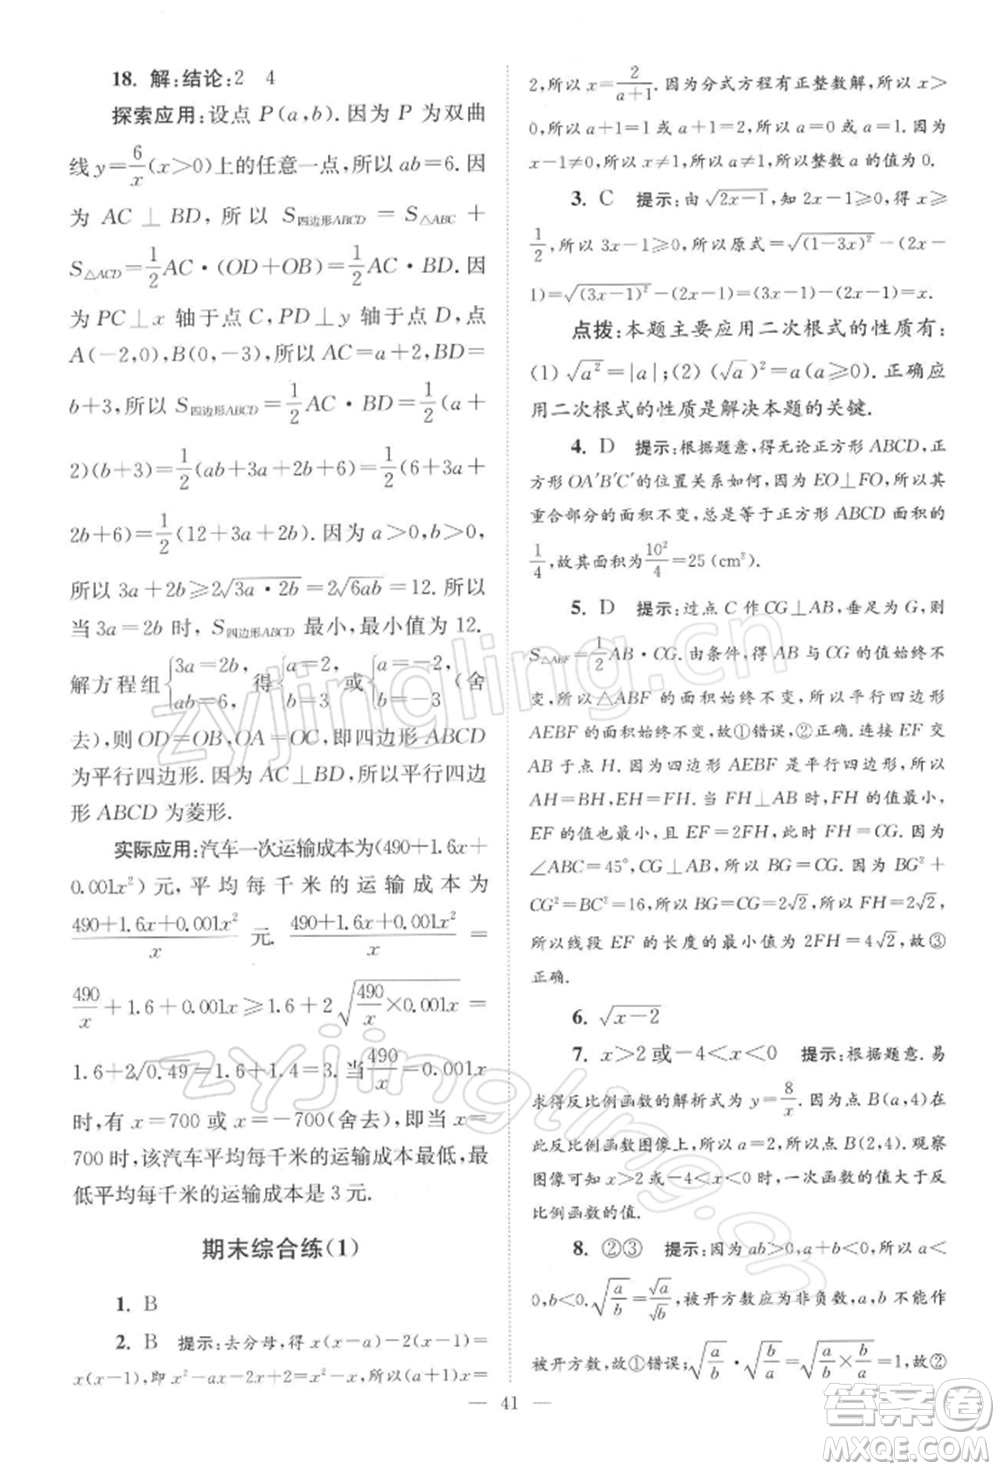 18. 解:结论:2　4
探索应用:设点 P(a,b). 因为 P 为双曲
线 y=6/x(x>0)上的任意一点,所以 ab=6. 因
为 AC⊥BD, 所以 S四边形ABCD = S△ABC +
S△ACD=1/2AC·(OD+OB)=1/2AC·BD. 因
为 PC⊥x 轴于点 C,PD⊥y 轴于点 D,点
A(-2,0),B(0,-3),所以 AC=a+2,BD=
b+3,所以 S四边形ABCD=1/2AC·BD=1/2(a+
2)(b+3)=1/2(ab+3a+2b+6)=1/2(6+3a+
2b+6)=1/2(12+3a+2b). 因为 a>0,b>0,
所以 3a+2b≥2√(3a·2b)=2√(6ab)=12. 所以
当 3a=2b 时, S四边形ABCD 最小,最小值为 12.
解方程组{3a=2b, ab=6, 得{a=2, b=3 或{a=-2, b=-3 (舍
去),则 OD=OB,OA=OC,即四边形 ABCD
为平行四边形. 因为 AC⊥BD,所以平行四边
形 ABCD 为菱形.
实际应用:汽车一次运输成本为(490+1.6x+
0.001x²)元,平均每千米的运输成本为
(490+1.6x+0.001x²)/x 元. (490+1.6x+0.001x²)/x =
490/x+1.6+0.001x≥1.6+2√(490/x×0.001x)=
1.6+2√0.49=1.6+1.4=3. 当490/x=0.001x
时,有 x=700 或 x=-700(舍去),即当 x=
700 时,该汽车平均每千米的运输成本最低,最
低平均每千米的运输成本是 3 元.
期末综合练(1)
1. B
2. B　提示:去分母,得 x(x-a)-2(x-1)=
x(x-1),即 x²-ax-2x+2=x²-x,所以(a+1)x=
2,所以 x=2/(a+1). 因为分式方程有正整数解,所以 x>
0,所以 a+1=1 或 a+1=2,所以 a=0 或 a=1. 因为
x-1≠0,所以 x≠1,所以 a≠1,所以整数 a 的值为 0.
3. C　提示:由√(2x-1),知 2x-1≥0,得 x≥
1/2,所以 3x-1>0,所以原式=√((1-3x)²)-(2x-
1)=√((3x-1)²)-(2x-1)=(3x-1)-(2x-1)=x.
点拨:本题主要应用二次根式的性质有:
(1) √(a²)=|a|;(2) (√a)²=a(a≥0). 正确应
用二次根式的性质是解决本题的关键.
4. D　提示:根据题意,得无论正方形 ABCD,正
方形 OA′B′C′的位置关系如何,因为 EO⊥FO,所以其
重合部分的面积不变,总是等于正方形 ABCD 面积的
1/4,故其面积为10²/4=25(cm²).
5. D　提示:过点 C 作 CG⊥AB,垂足为 G,则
S△ABF=1/2AB·CG. 由条件,得 AB 与 CG 的值始终不
变,所以△ABF 的面积始终不变,所以平行四边形
AEBF 的面积始终不变,故①错误,②正确. 连接 EF 交
AB 于点 H. 因为四边形 AEBF 是平行四边形,所以
AH=BH,EF=2FH,所以当 FH 的值最小时,
EF 的值最小. 当 FH⊥AB 时,FH 的值最小. 因为
∠ABC=45°,CG⊥AB,所以 BG=CG. 因为 BG²+
CG²=BC²=16,所以 BG=CG=2√2,所以 FH=2√2,
所以线段 EF 的长度的最小值为 2FH=4√2,故③
正确.
6. √(x-2)
7. x>2 或 -4<x<0　提示:根据题意. 易
求得反比例函数的解析式为 y=8/x. 因为点 B(a,4)在
此反比例函数图像上,所以 a=2,所以点 B(2,4). 观察
图像可知,x>2 或 -4<x<0 时,一次函数的值大于反
比例函数的值.
8. ②③　提示:因为 ab>0,a+b<0,所以 a<
0,b<0. √(a/b)=√a/√b,被开方数应为非负数,a,b不能作
被开方数,故①错误;√(a/b)·√(b/a)=√(a/b×b/a)=1,故②
41
zyjingling.cn
zyjingling.cn
答案圈
MXQE.COM